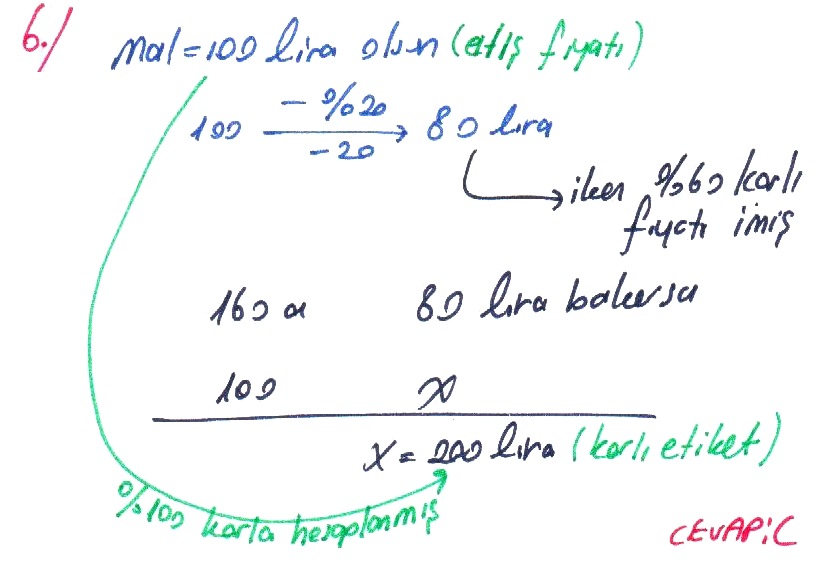 6./ Mal = 100 lira olsun (atış fiyatı)
- %20
100 → 80 lira
- 20
iken %60 karlı
fiyatı imiş
160 a 80 lira bakarsa
100 x
x = 200 lira (karlı etiket)
%100 karla hesaplanmış
CEVAP: C